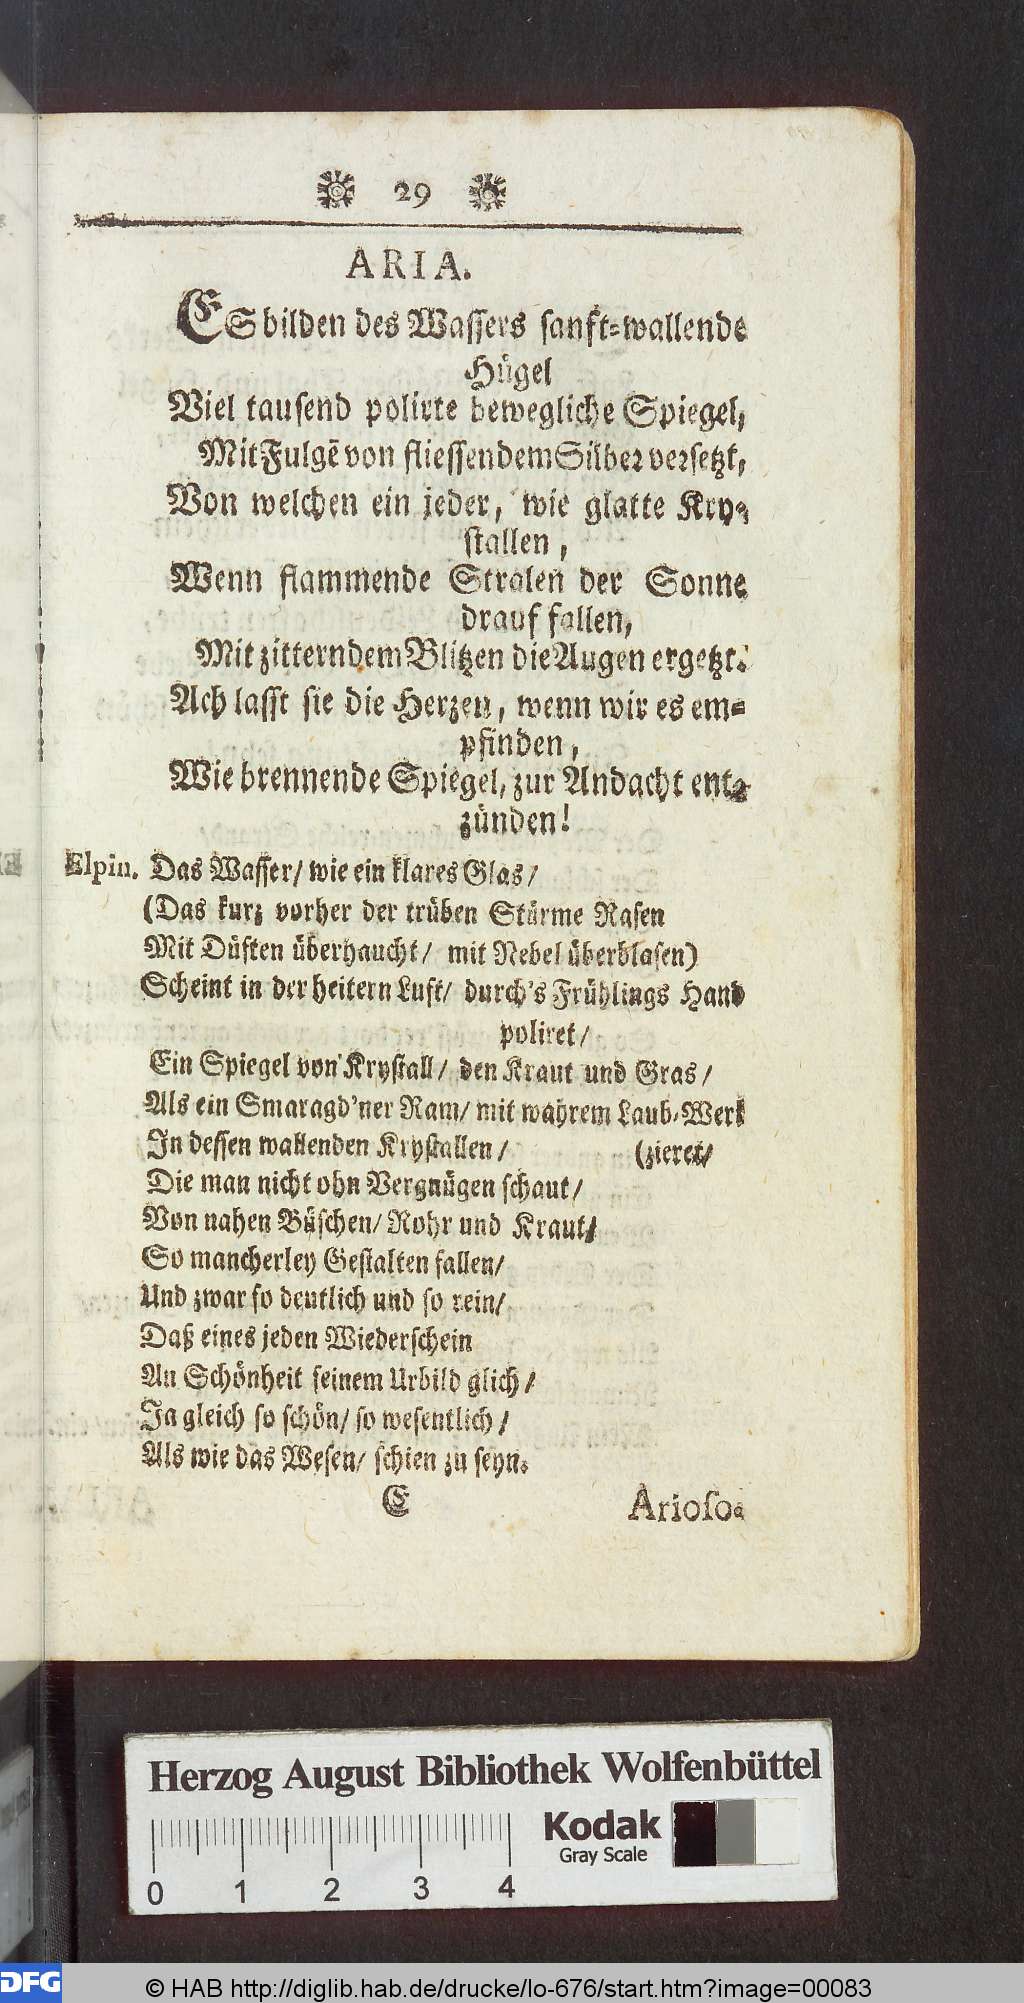 29
ARIA.
ES bilden des Wassers sanft-wallende
Hügel
Viel tausend polirte bewegliche Spiegel,
Mit Fulgē von fliessendem Silber versetzt,
Von welchen ein jeder, wie glatte Kry-
stallen,
Wenn flammende Stralen der Sonne
drauf fallen,
Mit zitterndem Blitzen die Augen ergetzt.
Ach lasst sie die Herzen, wenn wir es em-
pfinden,
Wie brennende Spiegel, zur Andacht ent-
zünden!
Elpin. Das Wasser/ wie ein klares Glas/
(Das kurz vorher der trüben Stürme Rasen
Mit Düften überhaucht/ mit Nebel überblasen)
Scheint in der heitern Luft/ durch's Frühlings Hand
poliret/
Ein Spiegel von Krystall/ den Kraut und Gras/
Als ein Smaragd'ner Ram/ mit wahrem Laub-Werk
In dessen wallenden Krystallen/ (zieret/
Die man nicht ohn Vergnügen schaut/
Von nahen Büschen/ Rohr und Kraut/
So mancherley Gestalten fallen/
Und zwar so deutlich und so rein/
Daß eines jeden Wiederschein
An Schönheit seinem Urbild glich/
Ja gleich so schön/ so wesentlich/
Als wie das Wesen/ schien zu seyn.
E Arioso.
Herzog August Bibliothek Wolfenbüttel
Kodak
Gray Scale
0 1 2 3 4
DFG
© HAB http://diglib.hab.de/drucke/lo-676/start.htm?image=00083